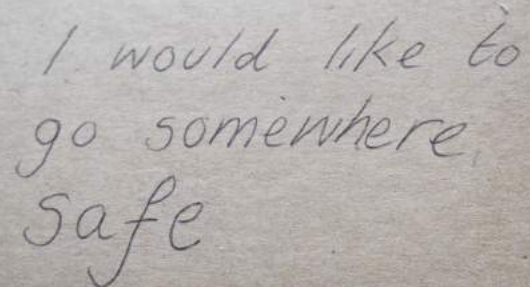 I would like to
go somewhere
safe